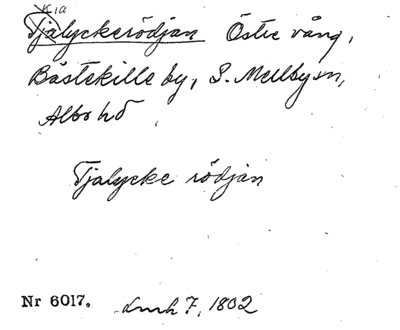 Kia
Tjalyckerödjan Östre vång,
Bästekille by, S. Mellby sn,
Albo hd
Tjalycke rödjan
Nr 6017. lmh 7, 1802